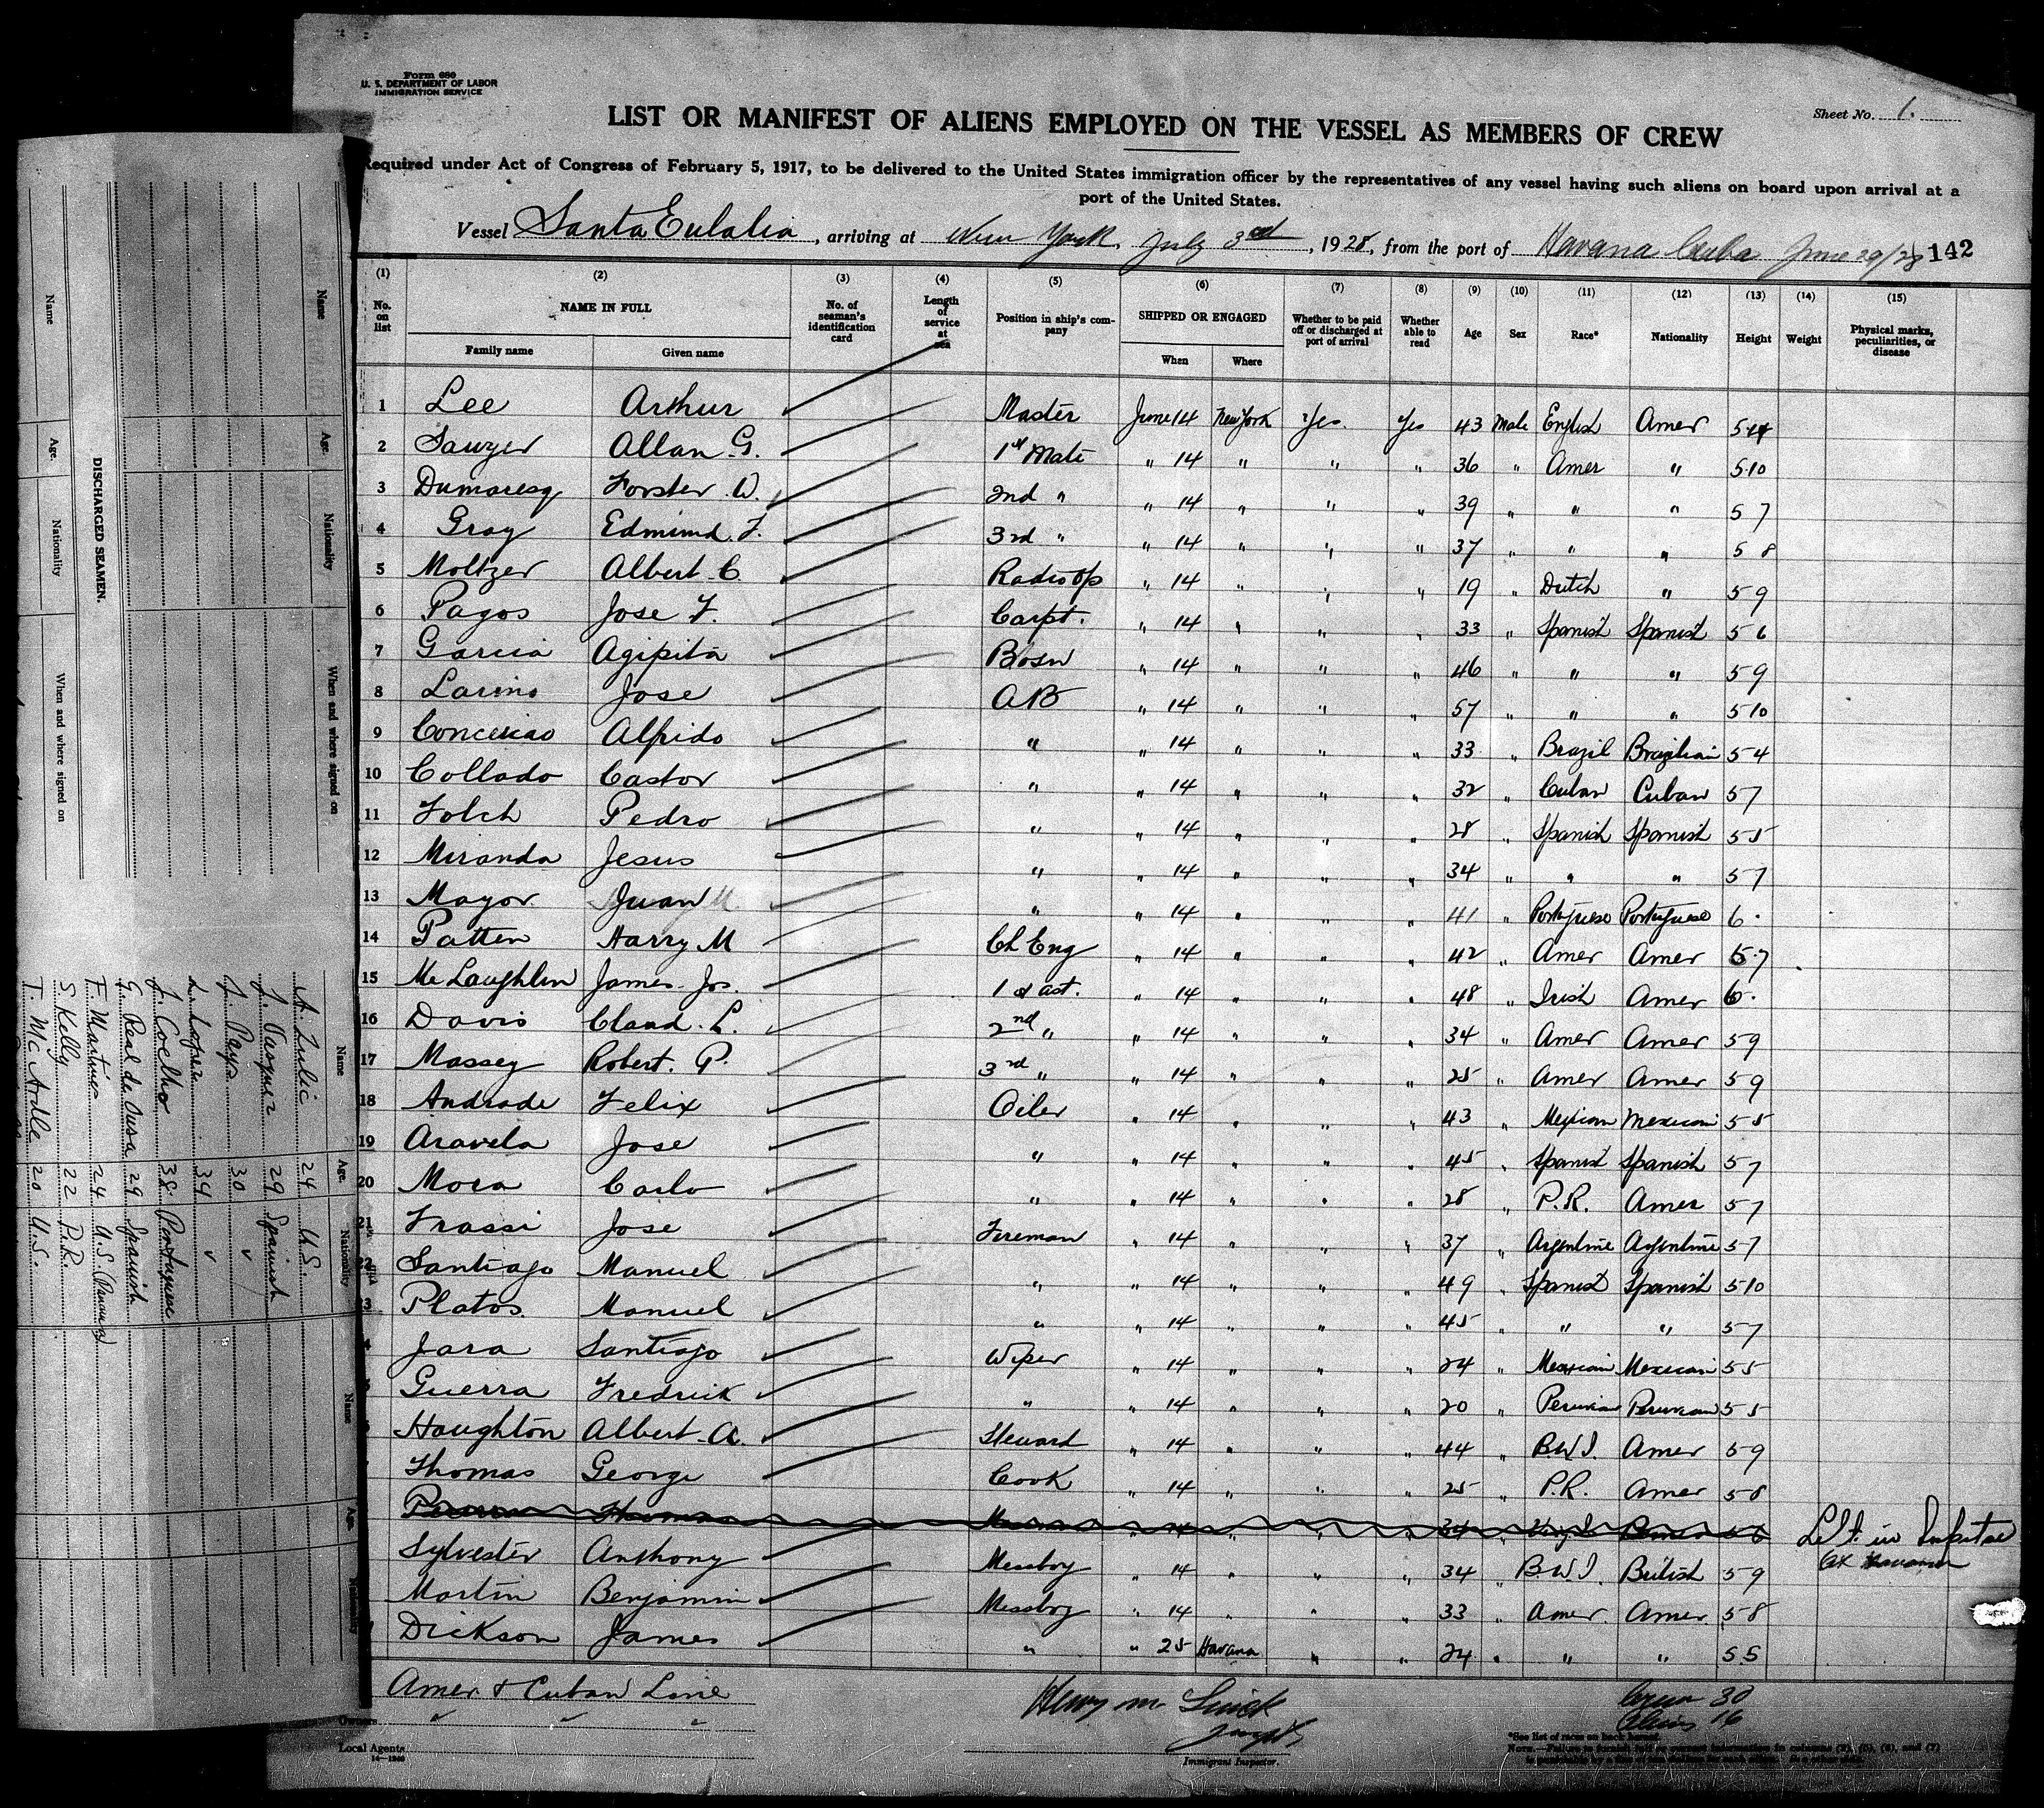 Form 680
U. S. DEPARTMENT OF LABOR
IMMIGRATION SERVICE
Sheet No. 1.
LIST OR MANIFEST OF ALIENS EMPLOYED ON THE VESSEL AS MEMBERS OF CREW
Required under Act of Congress of February 5, 1917, to be delivered to the United States immigration officer by the representatives of any vessel having such aliens on board upon arrival at a
port of the United States.
Vessel Santa Eulalia, arriving at New York, July 3rd, 1928, from the port of Havana Cuba June 29/28 142
(1) (2) (3) (4) (5) (6) (7) (8) (9) (10) (11) (12) (13) (14) (15)
No. on list NAME IN FULL No. of seaman's identification card Length of service at sea Position in ship's company SHIPPED OR ENGAGED Whether to be paid off or discharged at port of arrival Whether able to read Age Sex Race* Nationality Height Weight Physical marks, peculiarities, or disease
Family name Given name When Where
1 Lee Arthur Master June 14 New York Yes. Yes 43 Male English Amer
2 Sawyer Allan G. 1st Mate " 14 " " " 36 " Amer " 5 10
3 Dumaresq Forster W. 2nd " " 14 " " " 39 " " " 5 7
4 Gray Edmund F. 3rd " " 14 " " " 37 " " " 5 8
5 Moltzer Albert C. Radio Op " 14 " " " 19 " Dutch " 5 9
6 Pagos Jose F. Carpt. " 14 " " " 33 " Spanish Spanish 5 6
7 Garcia Agipita Bosn " 14 " " " 46 " " " 5 9
8 Larino Jose AB " 14 " " " 57 " " " 5 10
9 Conceicao Alfrido " " 14 " " " 33 " Brazil Brazilian 5 4
10 Collado Castor " " 14 " " " 32 " Cuban Cuban 5 7
11 Folch Pedro " " 14 " " " 28 " Spanish Spanish 5 5
12 Miranda Jesus " " 14 " " " 34 " " " 5 7
13 Mayor Juan M. " " 14 " " " 41 " Portuguese Portuguese 6.
14 Patten Harry M Ch Eng " 14 " " " 42 " Amer Amer 5.7
15 McLaughlin James Jos. 1st ast. " 14 " " " 48 " Irish Amer 6.
16 Davis Claud. L. 2nd " " 14 " " " 34 " Amer Amer 5 9
17 Massey Robert. P. 3rd " " 14 " " " 25 " Amer Amer 5 9
18 Andrade Felix Oiler " 14 " " " 43 " Mexican Mexican 5 5
19 Aravela Jose " " 14 " " " 45 " Spanish Spanish 5 7
20 Mora Carlo " " 14 " " " 28 " P.R. Amer 5 7
21 Frassi Jose Fireman " 14 " " " 37 " Argentine Argentine 5 7
22 Santiago Manuel " " 14 " " " 49 " Spanish Spanish 5 10
23 Platos Manuel " " 14 " " " 45 " " " 5 7
4 Jara Santiago Wiper " 14 " " " 24 " Mexican Mexican 5 5
5 Guerra Fredrick " " 14 " " " 20 " Peruvian Peruvian 5 5
6 Houghton Albert A. Steward " 14 " " " 44 " B.W.I. Amer 5 9
Thomas George Cook " 14 " " " 25 " P.R. Amer 5 8
Thomas " 14 " " " 34 " Left in
Sylvester Anthony Messboy " 14 " " " 34 " B.W.I. British 5 9
Martin Benjamin Messboy " 14 " " " 33 " Amer. Amer. 5 8
Dickson James " " 25 Havana " " 24 " " " 5 5
Amer & Cuban Line
Owners " " "
Local Agents
14—1240
Henry M.
Immigrant Inspector.
Crew 30
Aliens 16
*See list of races on back hereof.
DISCHARGED SEAMEN.
Name Age. Nationality When and where signed on
Name Age. Nationality When and where signed on
Name Age. Nationality
A. Zulic 24 U.S.
J. Vasquez 29 Spanish
J. Pays 30 "
L. Lopez 34 "
J. Coelho 38 Portuguese
G. Real de Ousa 29 Spanish
F. Martines 24 U.S. (Panama)
S. Kelly 22 P.R.
T. McArdle 20 U.S.
Name Age. Nationality